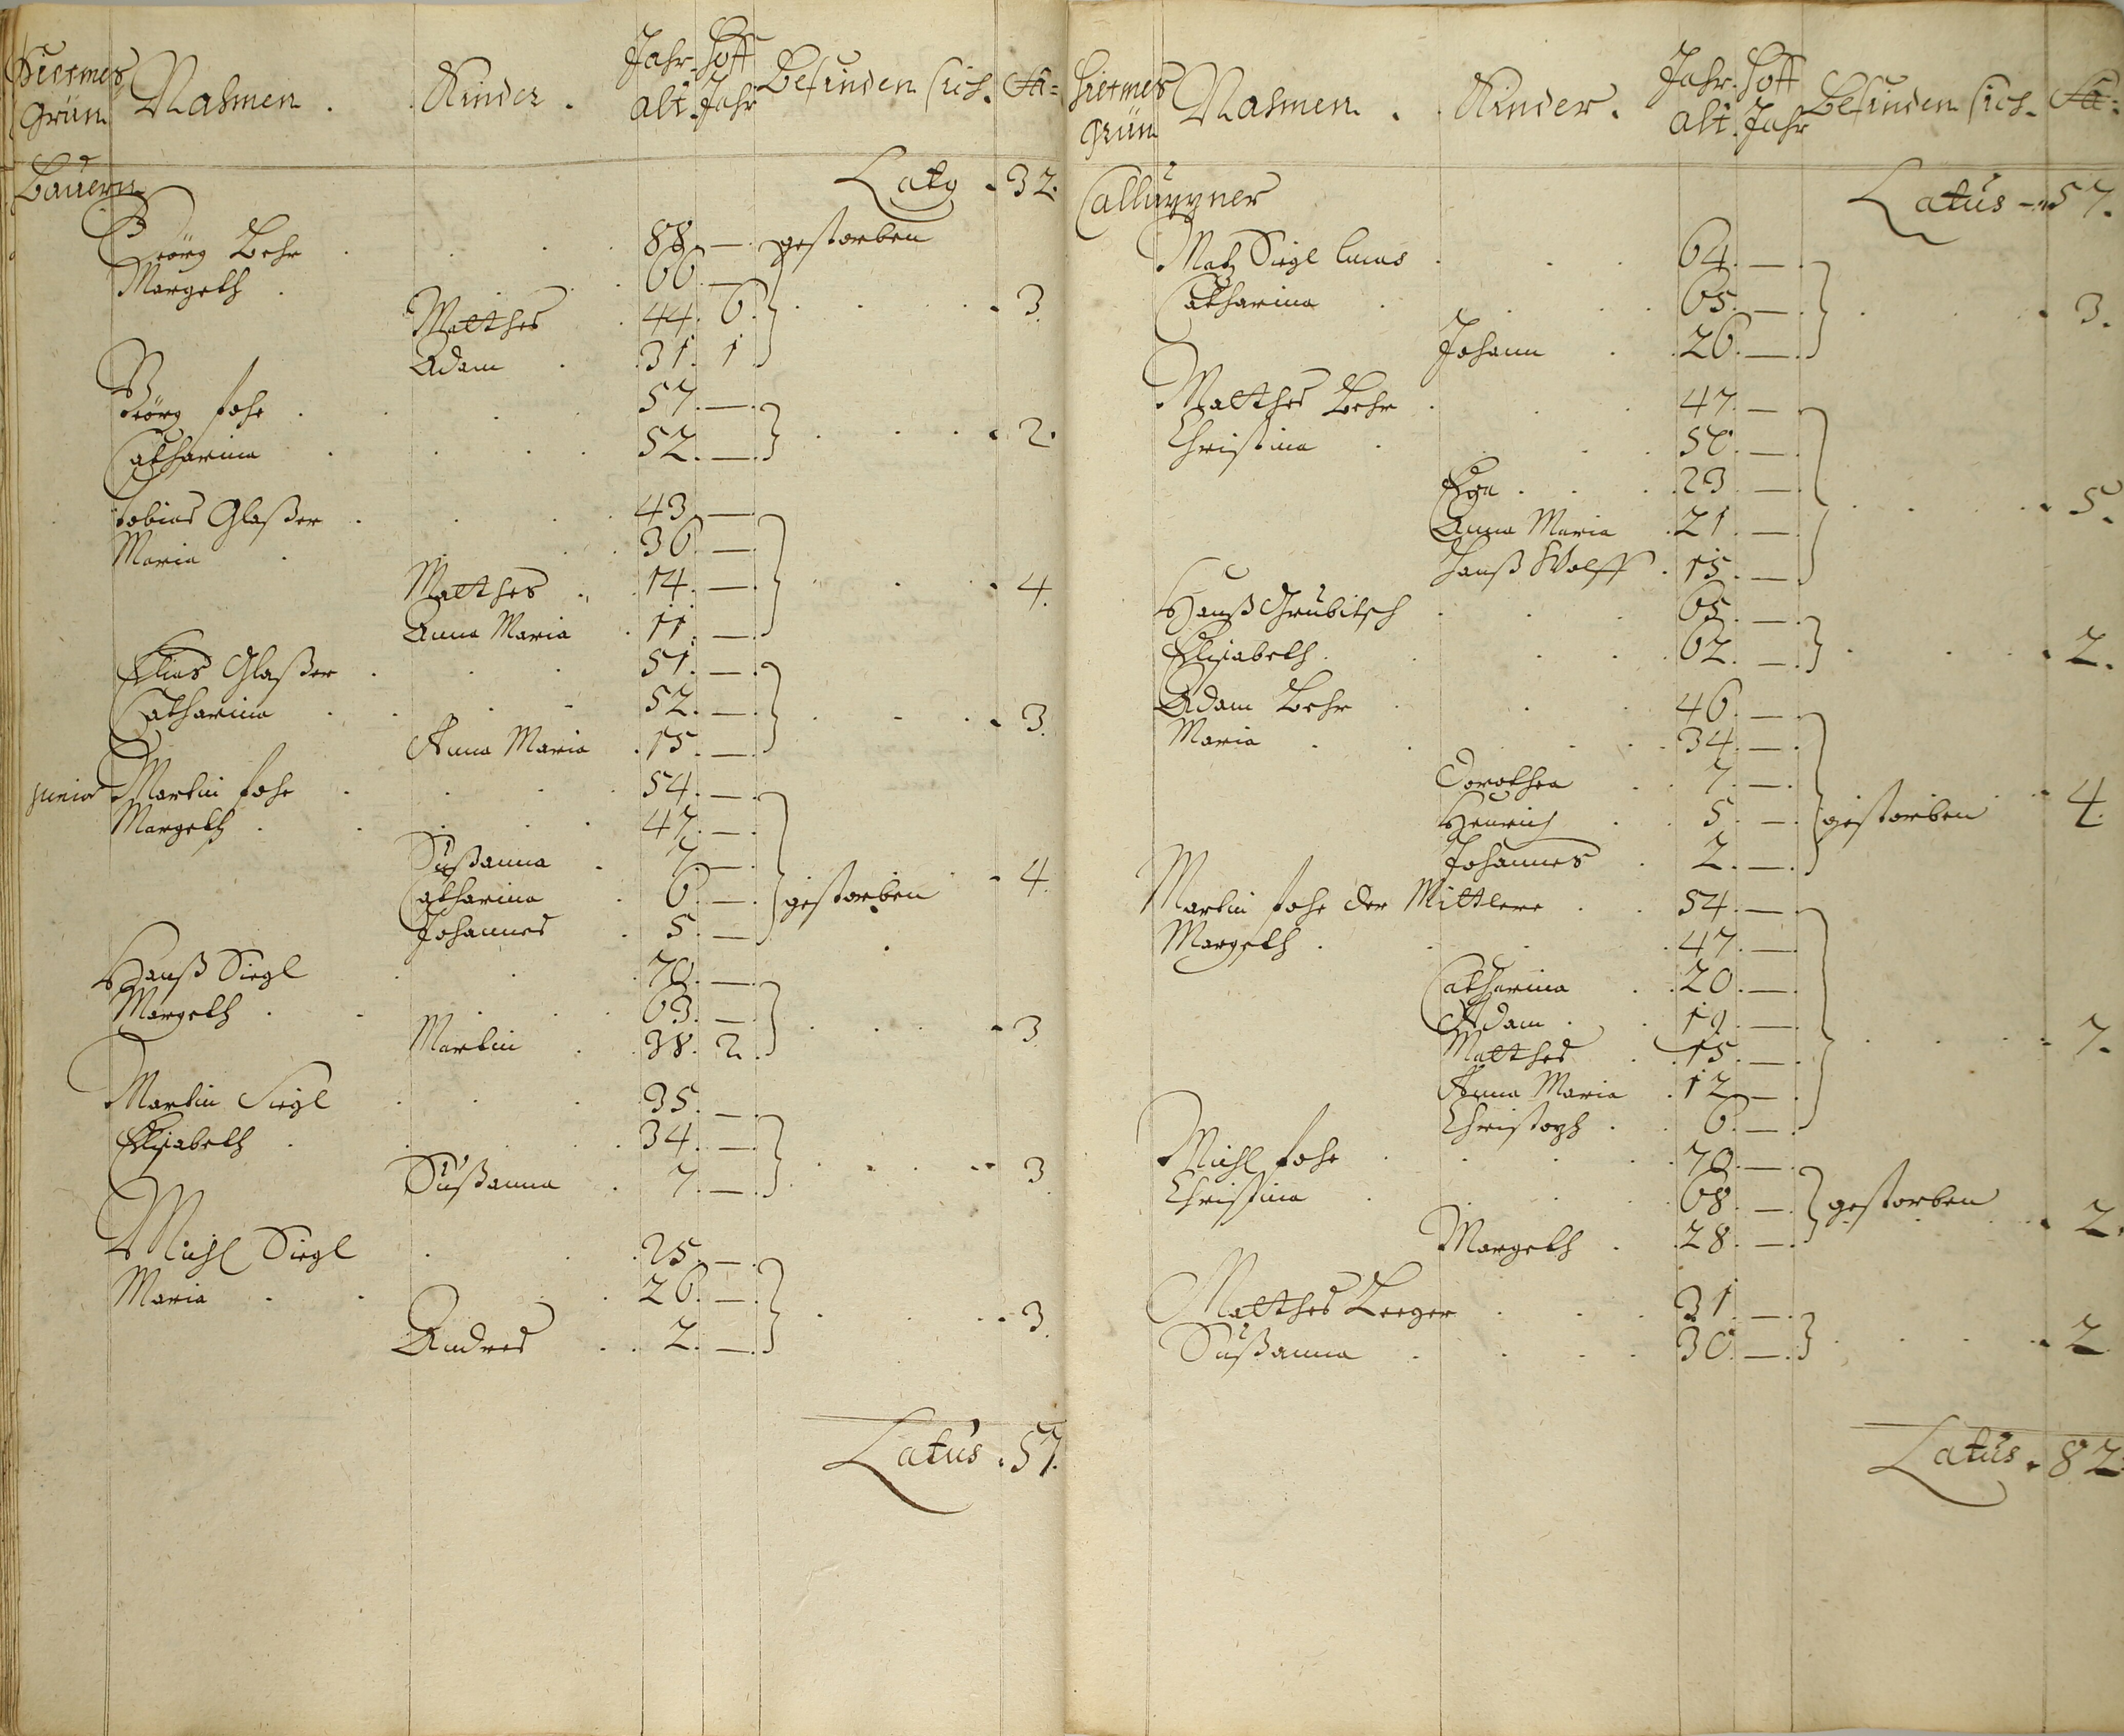 Hiermes
Grün
Nahmen . Kinder . Jahr alt . Hoff Jahr Befinden sich .
Bauern
Latg . 32.
Geörg Lehr . 88. — gestorben
Margeth . 66. —
Matthes 44. 6. 3.
Adam . 31. 1
Geörg fohr . 57. —
Catharina 52. — 2.
Tobias Glaßer . 43. —
Maria 36. —
Matthes . 14. — 4.
Anna Maria . 11. —
Elias Glaßer . 51. —
Catharina . 52. — 3.
Anna Maria . 15. —
junior Martin fohr . 54. —
Margeth . 47. —
Sußanna . 7. —
Catharina . 6. — gestorben 4.
Johannes . 5. —
Hanß Siegl . 70. —
Margeth . 63. —
Martin . 38. 2. 3
Martin Siegl . 35. —
Elisabeth . 34. —
Sußanna . 7. — 3
Michl Siegl . 25. —
Maria . 26. —
Andres . 2. — 3.
Latus . 57.
Hiermes
Grün
Nahmen . Kinder . Jahr alt . Hoff Jahr Befinden sich .
Latus — 57.
Matz Siegl . 64. —
Catharina . 65. — 3.
Johann . 26. —
Matthes Lehr . 47. —
Christina . 50. —
Eva . 23 —
Anna Maria . 21. — 5.
Hanß Wolff . 15. —
Hanß Grubitsch . 65. —
Elisabeth . 62. — 2.
Adam Lehr . 46. —
Maria . 34. —
Dorothea . 7. —
Henrich . 5. — gestorben 4.
Johannes . 2. —
Martin fohr der Mittlere . 54. —
Margeth . 47. —
Catharina . 20. —
Adam . 19. —
Matthes . 15. — 7.
Anna Maria . 12. —
Christoph . 6. —
Michl fohr . 70. —
Christina . 68. — gestorben 2.
Margeth . 28. —
Matthes Leeger . 31. —
Sußanna . 30. — 2
Latus . 82.